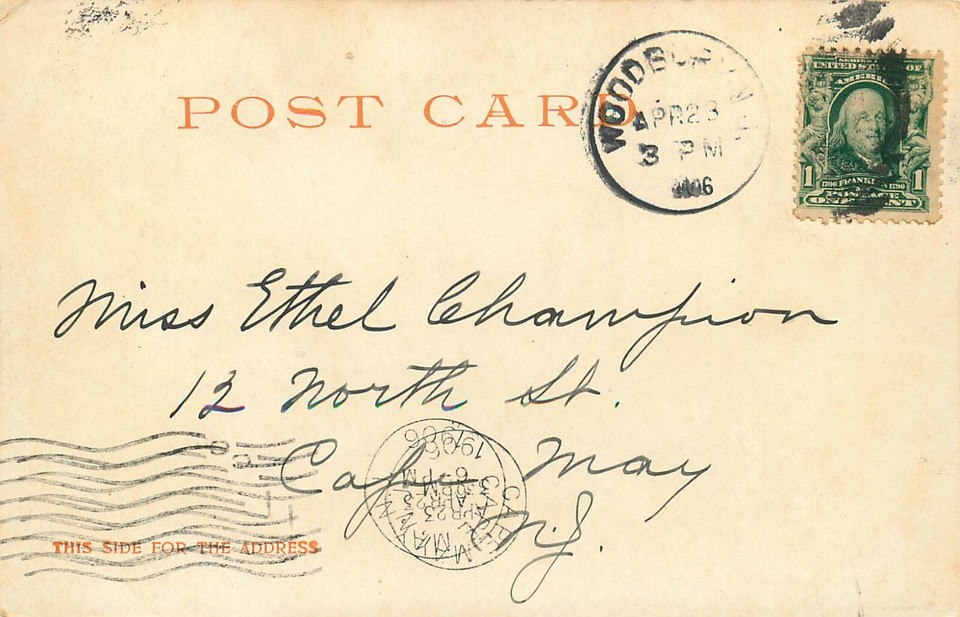 POST CARD
WOODBURY, N.J.
APR 23
3 PM
1906
SERIES 1902
UNITED STATES OF
AMERICA
1 1706 FRANKLIN 1790 1
POSTAGE
ONE CENT
Miss Ethel Champion
12 North St.
Cape May
N.J.
CAPE MAY
APR 23
6 PM
1906
THIS SIDE FOR THE ADDRESS